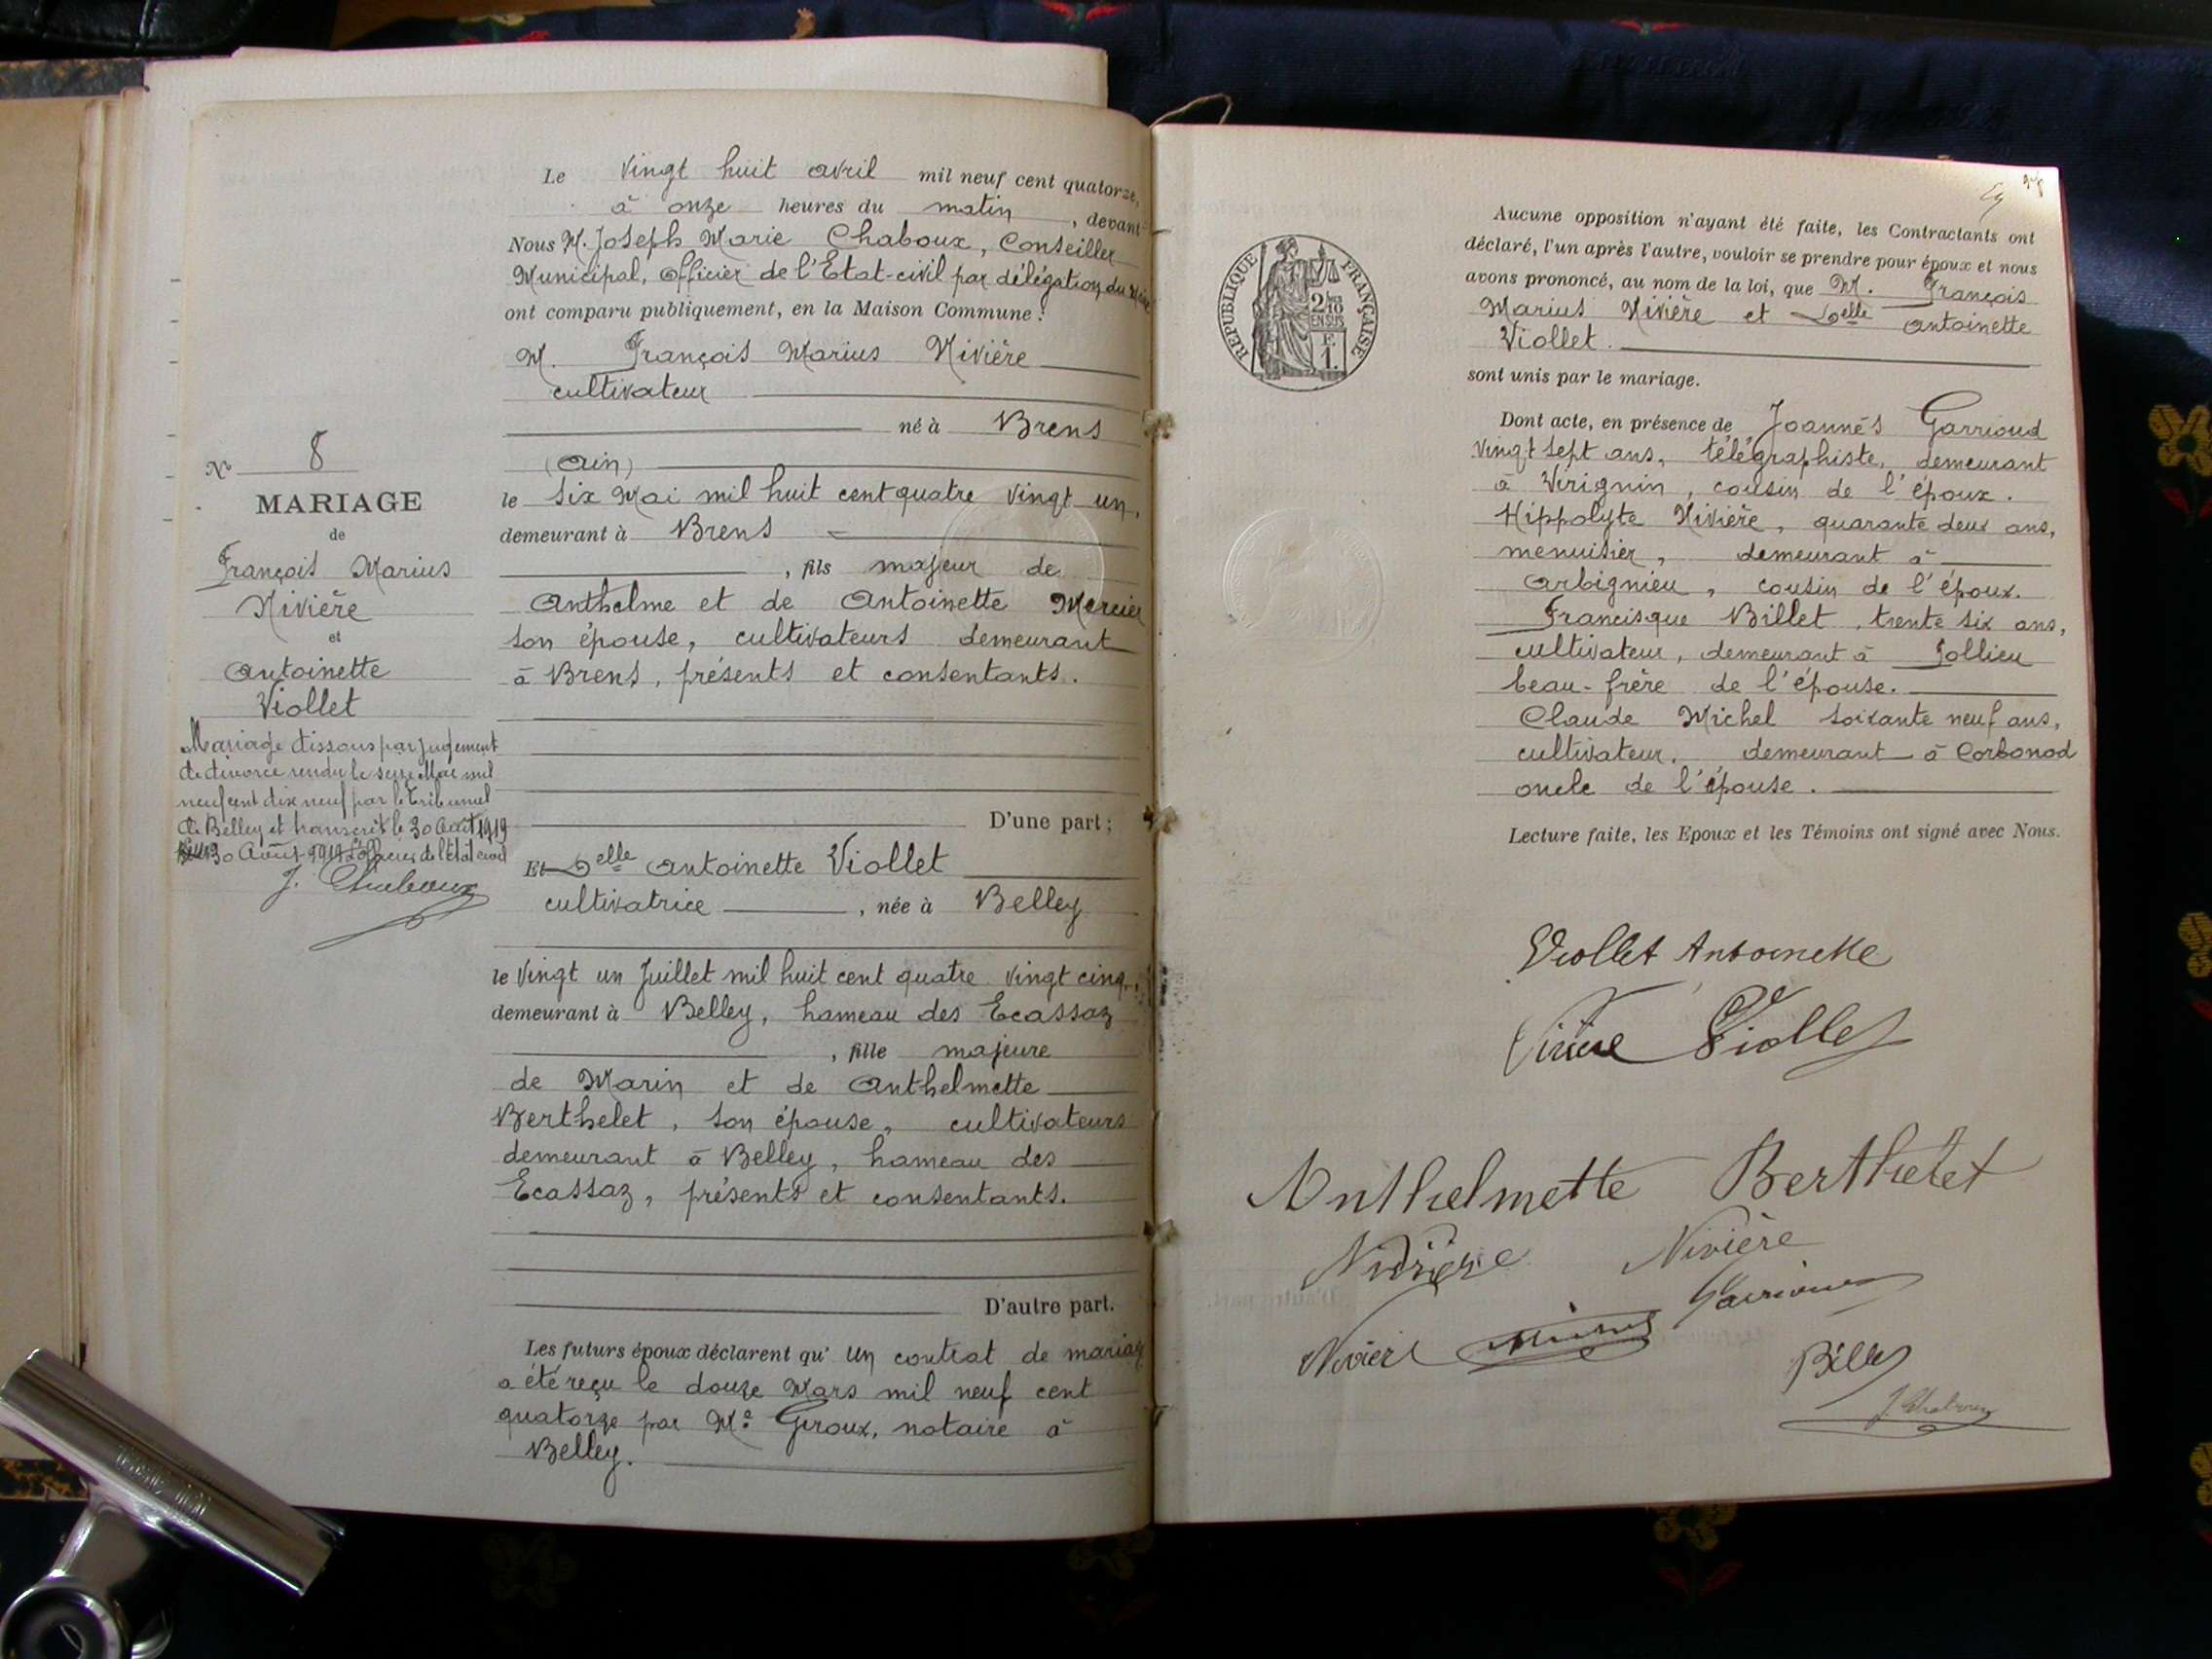 Le vingt huit avril mil neuf cent quatorze,
à onze heures du matin, devant
Nous M. Joseph Marie Chaboux, Conseiller
Municipal, officier de l'Etat-civil par délégation du
ont comparu publiquement, en la Maison Commune :
M. François Marius Nivière
cultivateur
né à Brens
(Ain)
le six Mai mil huit cent quatre vingt un,
demeurant à Brens
, fils majeur de
Anthelme et de Antoinette Mercier
son épouse, cultivateurs demeurant
à Brens, présents et consentants.
D'une part ;
Et Delle Antoinette Viollet
cultivatrice , née à Belley
le vingt un Juillet mil huit cent quatre vingt cinq,
demeurant à Belley, hameau des Ecassaz
, fille majeure
de Marin et de Anthelmette
Berthelet, son épouse, cultivateurs
demeurant à Belley, hameau des
Ecassaz, présents et consentants.
D'autre part.
Les futurs époux déclarent qu' un contrat de mariage
a été reçu le douze Mars mil neuf cent
quatorze par Me Giroux, notaire à
Belley.
No 8
MARIAGE
de
François Marius
Nivière
et
Antoinette
Viollet
Mariage dissous par jugement
de divorce rendu le seize Mai mil
neuf cent dix neuf par le Tribunal
de Belley et transcrit le 30 Août 1919
30 Août 1919 L'officier de l'Etat civil
J. Chaboux
Aucune opposition n'ayant été faite, les Contractants ont
déclaré, l'un après l'autre, vouloir se prendre pour époux et nous
avons prononcé, au nom de la loi, que M. François
Marius Nivière et Delle Antoinette
Viollet.
sont unis par le mariage.
Dont acte, en présence de Joannès Garrioud
vingt sept ans, télégraphiste, demeurant
à Virignin, cousin de l'époux.
Hippolyte Nivière, quarante deux ans,
menuisier, demeurant à
Arbignieu, cousin de l'époux.
Francisque Billet, trente six ans,
cultivateur, demeurant à Jollieu
beau-frère de l'épouse.
Claude Michel soixante neuf ans,
cultivateur, demeurant à Corbonod
oncle de l'épouse.
Lecture faite, les Epoux et les Témoins ont signé avec Nous.
REPUBLIQUE FRANÇAISE
2/10
EN SUS
F.
1.
Viollet Antoinette
Viollet
Anthelmette Berthelet
Nivière Nivière
Nivière Michel Garrioud
Billet
J. Chaboux